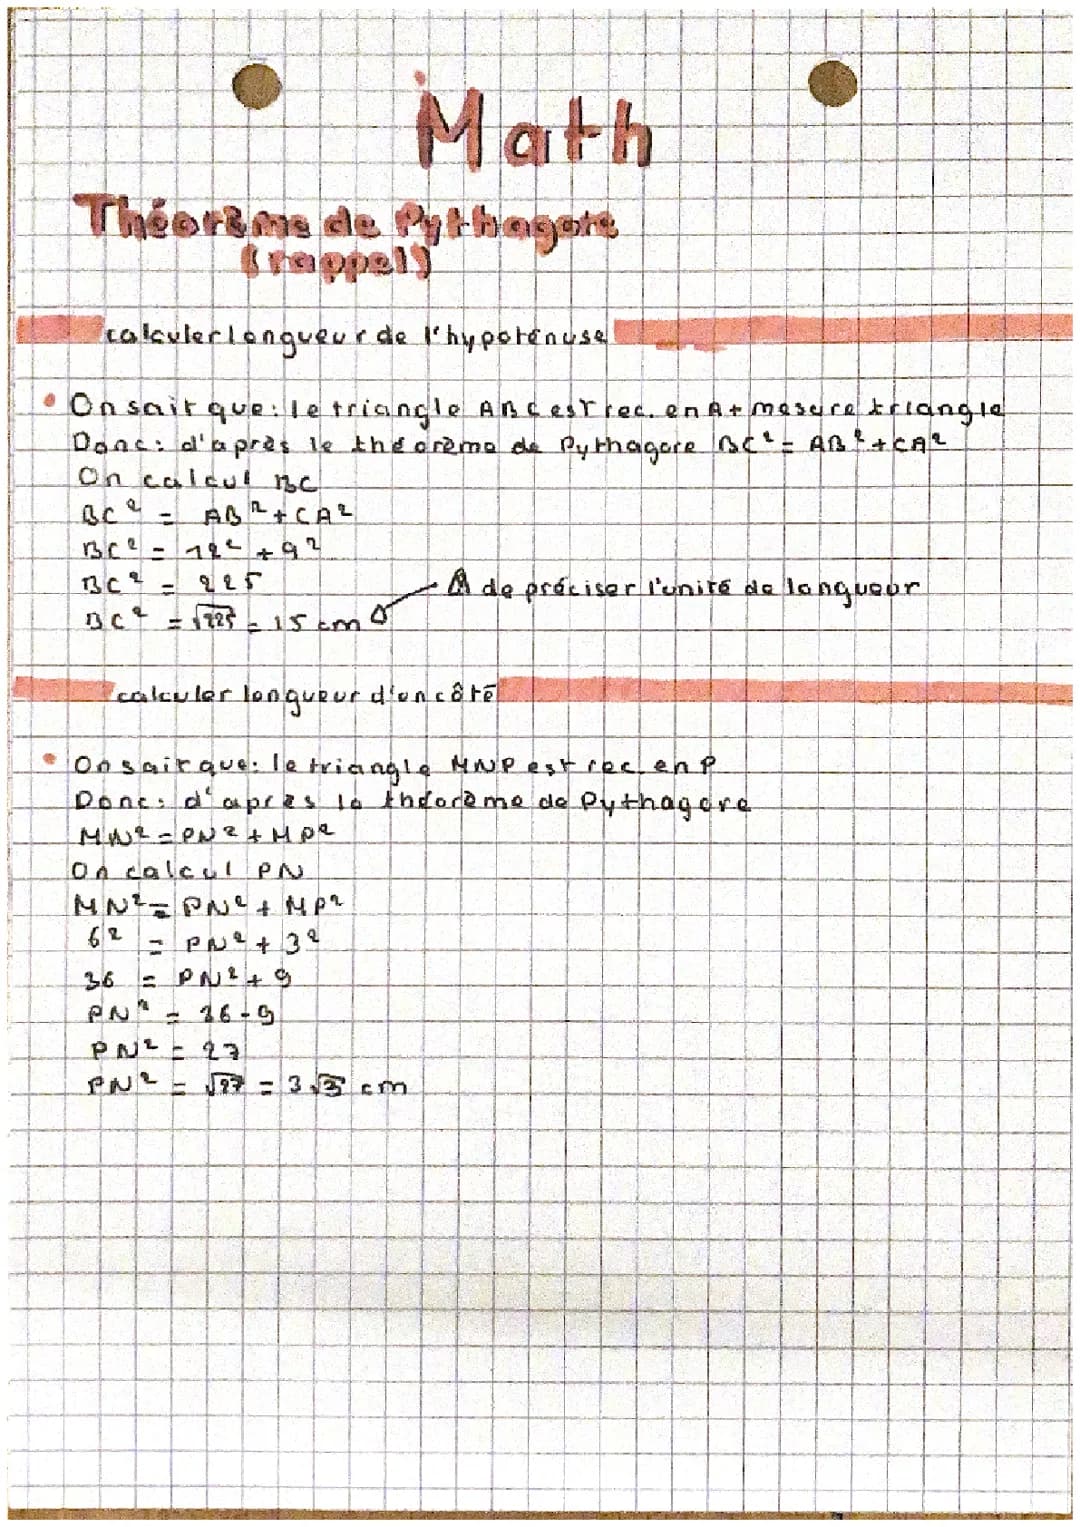 Math
Théorème de Pythagore
(rappel)
calculer longueur de l'hypoténuse
• On sait que: le triangle ABC est rec. en A + mesure triangle
Donc: d'après le théorème de Pythagore BC² = AB² + CA²
On calcul BC
BC² = AB² + CA²
BC² = 12² + 9²
BC² = 225
⚠ de préciser l'unité de longueur
BC² = √225 = 15 cm
calculer longueur d'un côté
• On sait que: le triangle MNP est rec. en P
Donc: d'après le théorème de Pythagore
MN² = PN² + MP²
On calcul PN
MN² = PN² + MP²
6² = PN² + 3²
36 = PN² + 9
PN² = 36 - 9
PN² = 27
PN² = √27 = 3√3 cm